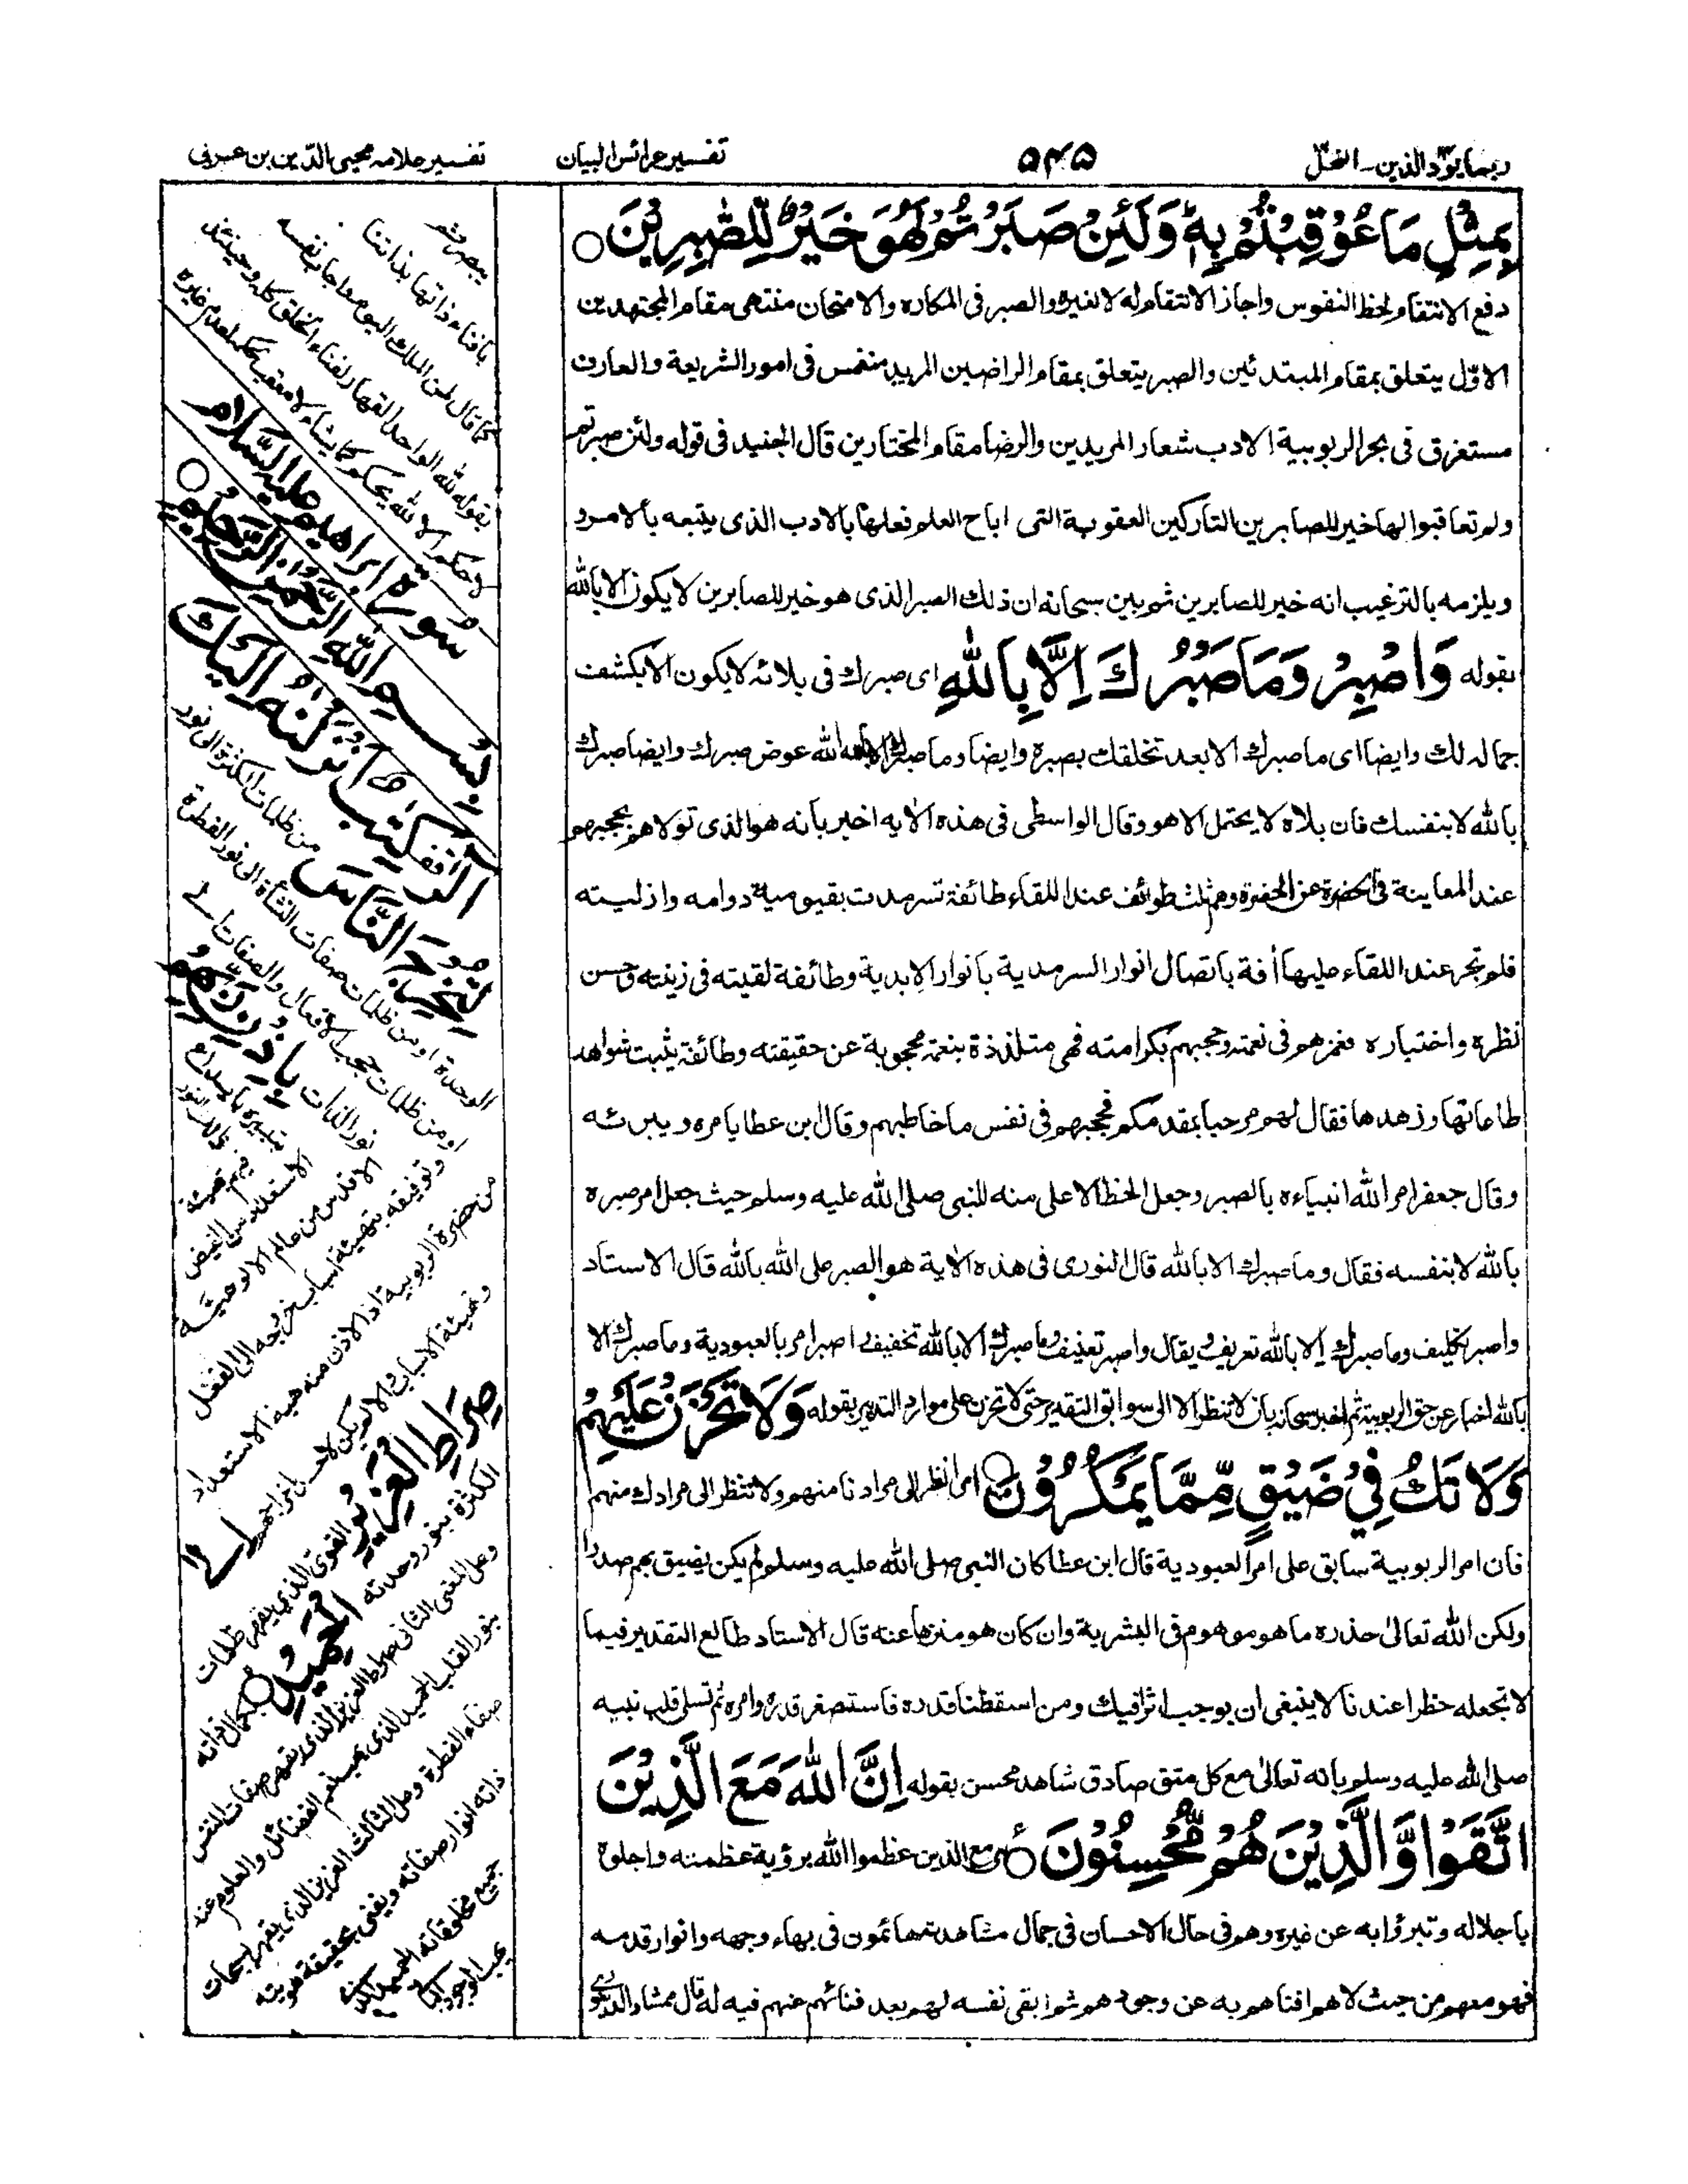 ربما يودّ الذين ۔ النحل
۵۴۵
تفسير عرائس البيان
تفسير علامه محيى الدّين بن عربى
بِمِثْلِ مَا عُوْقِبْتُمْ بِهٖ وَلَئِنْ صَبَرْتُمْ لَهُوَ خَيْرٌ لِّلصّٰبِرِيْنَ
دفع الانتقام لحظ النفوس واجاز الانتقام له لا لغيره والصبر فى المكاره والامتحان منتهى مقام المجتهدين
الاوّل يتعلق بمقام المبتدئين والصبر يتعلق بمقام الراضين المريد منغمس فى امور الشريعة والعارف
مستغرق فى بحر الربوبية الادب شعار المريدين والرضا مقام المختارين قال الجنيد فى قوله ولئن صبرتم
ولم تعاقبوا لها خير للصابرين التاركين العقوبة التى اباح العلم فعلها بالادب الذى يتبعه بالامر و
ويلزمه بالترغيب انه خير للصابرين ثم بين سبحانه ان ذلك الصبر الذى هو خير للصابرين لا يكون الا بالله
بقوله وَاصْبِرْ وَمَا صَبْرُكَ اِلَّا بِاللّٰهِ اى صبرك فى بلائه لا يكون الا بكشف
جماله لك وايضا اى ما صبرك الا بعد تخلقك بصبره وايضا وما صبرك الا الله عوض صبرك وايضا صبرك
بالله لا بنفسك فان بلاه لا يحتمل الا هو وقال الواسطى فى هذه الاٰيه اخبر بانه هو الذى تولاهم بحجبهم
عند المعاينة فى الحضرة عن الحفرة وهم ثلث طوائف عند اللقاء طائفة تسرمدت بقيومية دوامه وازليته
فلم تجر عند اللقاء عليها اٰفة باتصال انوار السرمدية بانوار الابدية وطائفة لقيته فى زينته وحسن
نظره واختياره فغمرهم فى نعمته وحجبهم بكرامته فهى متلذذة بنعمة محجوبة عن حقيقته وطائفة يثبت شواهد
طاعاتها وزهدها فقال لهم مرحبا بمقدمكم فحجبهم فى نفس ما خاطبهم وقال ابن عطا يامره
وقال جعفر امر الله انبياءه بالصبر وجعل الحظ الاعلى منه للنبى صلى الله عليه وسلم حيث جعل امر صبره
بالله لا بنفسه فقال وما صبرك الا بالله قال النورى فى هذه الاٰية هو الصبر على الله بالله قال الاستاد
واصبر تكليف وما صبرك الا بالله تعريف ويقال واصبر تعنيف وما صبرك الا بالله تخفيف اصبر امر بالعبودية وما صبرك الا
بالله اخبار عن حق الربوبية ثم اخبر سبحانه بان لا تنظر الا الى سوابق التقدير حتى لا تحزن على موارد التدبير بقوله وَلَا تَحْزَنْ عَلَيْهِمْ
وَلَا تَكُ فِيْ ضَيْقٍ مِّمَّا يَمْكُرُوْنَ امر انظر الى مرادنا منهم ولا تنظر الى مرادك منهم
فان امر الربوبية سابق على امر العبودية قال ابن عطا كان النبى صلى الله عليه وسلم لم يكن يضيق بهم صدرا
ولكن الله تعالىٰ حذره ما هو موهوم فى البشرية وان كان هو منزها عنه قال الاستاد طالع التقدير فيما
لا تجعله خطرا عندنا لا ينبغى ان يوجب اثرا فيك ومن اسقطنا قدره فاستصغر قدره وامره ثم تسلى قلب نبيه
صلى الله عليه وسلم بانه تعالىٰ مع كل متق صادق شاهد محسن بقوله اِنَّ اللّٰهَ مَعَ الَّذِيْنَ
اتَّقَوْا وَّالَّذِيْنَ هُمْ مُّحْسِنُوْنَ مع الذين عظموا الله برؤية عظمته واجلوه
باجلاله وتبرؤا به عن غيره وهو فى حال الاحسان فى جمال مشاهدته هائمون فى بهاء وجهه وانوار قدسه
فهو معهم من حيث لا هم افناهم به عن وجودهم ثم ابقى نفسه لهم بعد فنائهم عنهم فيه له قال ممشاد الدينورى
بافناء ذاتها بذاتنا
كما قال لمن الملك اليوم واجاب نفسه
بقوله لله الواحد القهار لفناء الخلق كله وحينئذ
لا حكم الا لله يحكم كما يشاء لا معقب لحكمه لعدم غيره
سورة ابراهيم عليه السّلام
بسم الله الرّحمٰن الرّحيم
الٓرٰ كِتٰبٌ اَنْزَلْنٰهُ اِلَيْكَ
لِتُخْرِجَ النَّاسَ من ظلمات الكثرة الى نور
الوحدة او من ظلمات صفات النشأة الى نور الفطرة
او من ظلمات حجب الافعال والصفات الى
نور الذات بِاِذْنِ رَبِّهِمْ
بتيسيره بايداع
ذلك النور
فيهم بهيئة
الاستعداد من الفيض
الاقدس من عالم الالوهيّة
وتوفيقه بتهيئة اسباب خروجه الى الفعل
من حضرة الربوبية اذ الاذن منه هبة الاستعداد
وتهيئة الاسباب والا لم يكن لاحد اخراجهم الى
صِرَاطِ الْعَزِيْزِ القوىّ الذى يقهر ظلمات
الكثرة بنور وحدته الْحَمِيْدِ بكمال ذاته
وعلى المعنى الثانى صراط العزيز الذى يقهر صفات النفس
بنور القلب الحميد الذى يهب نعم الفضائل والعلوم عند
صفاء الفطرة وعلى الثالث العزيز الذى يقهر بسبحات
ذاته انوار صفاته ويفنى بحقيقة هويته
جميع مخلوقاته الحميد الذى
يهب الوجود